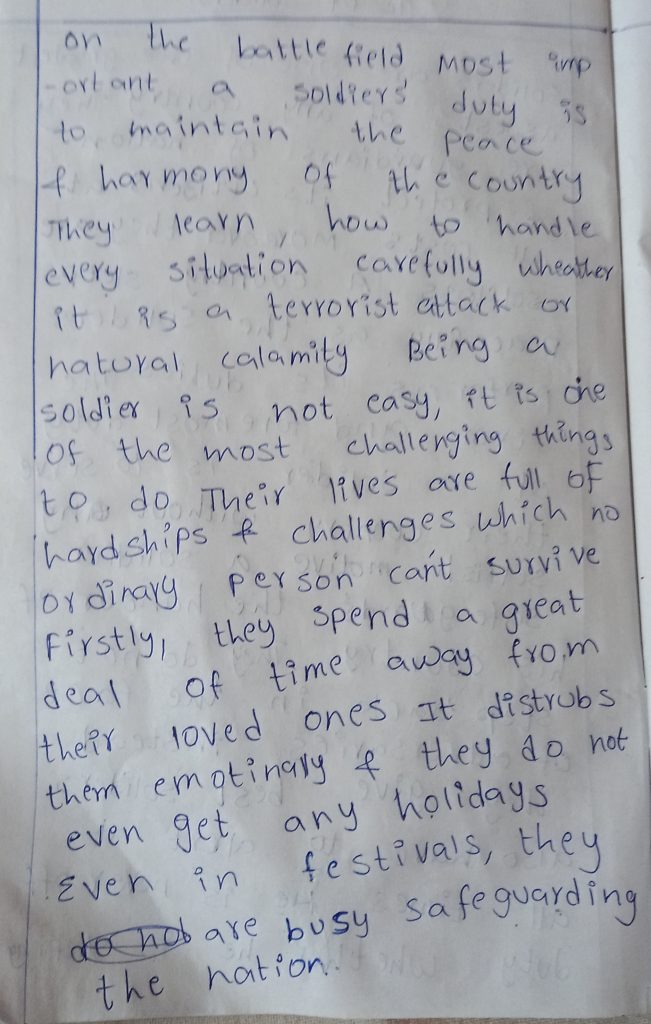 on the battle field Most imp
-ortant a soldiers' duty is
to maintain the peace
& harmony of the country
They learn, how to handle
every situation carefully wheather
it is a terrorist attack or
natural calamity Being a
soldier is not easy, it is one
of the most challenging things
to do Their lives are full of
hardships & challenges which no
ordinary person can't survive
Firstly, they spend a great
deal of time away from
their loved ones It distrubs
them emotinaly & they do not
even get any holidays
Even in festivals, they
do not are busy safeguarding
the nation.